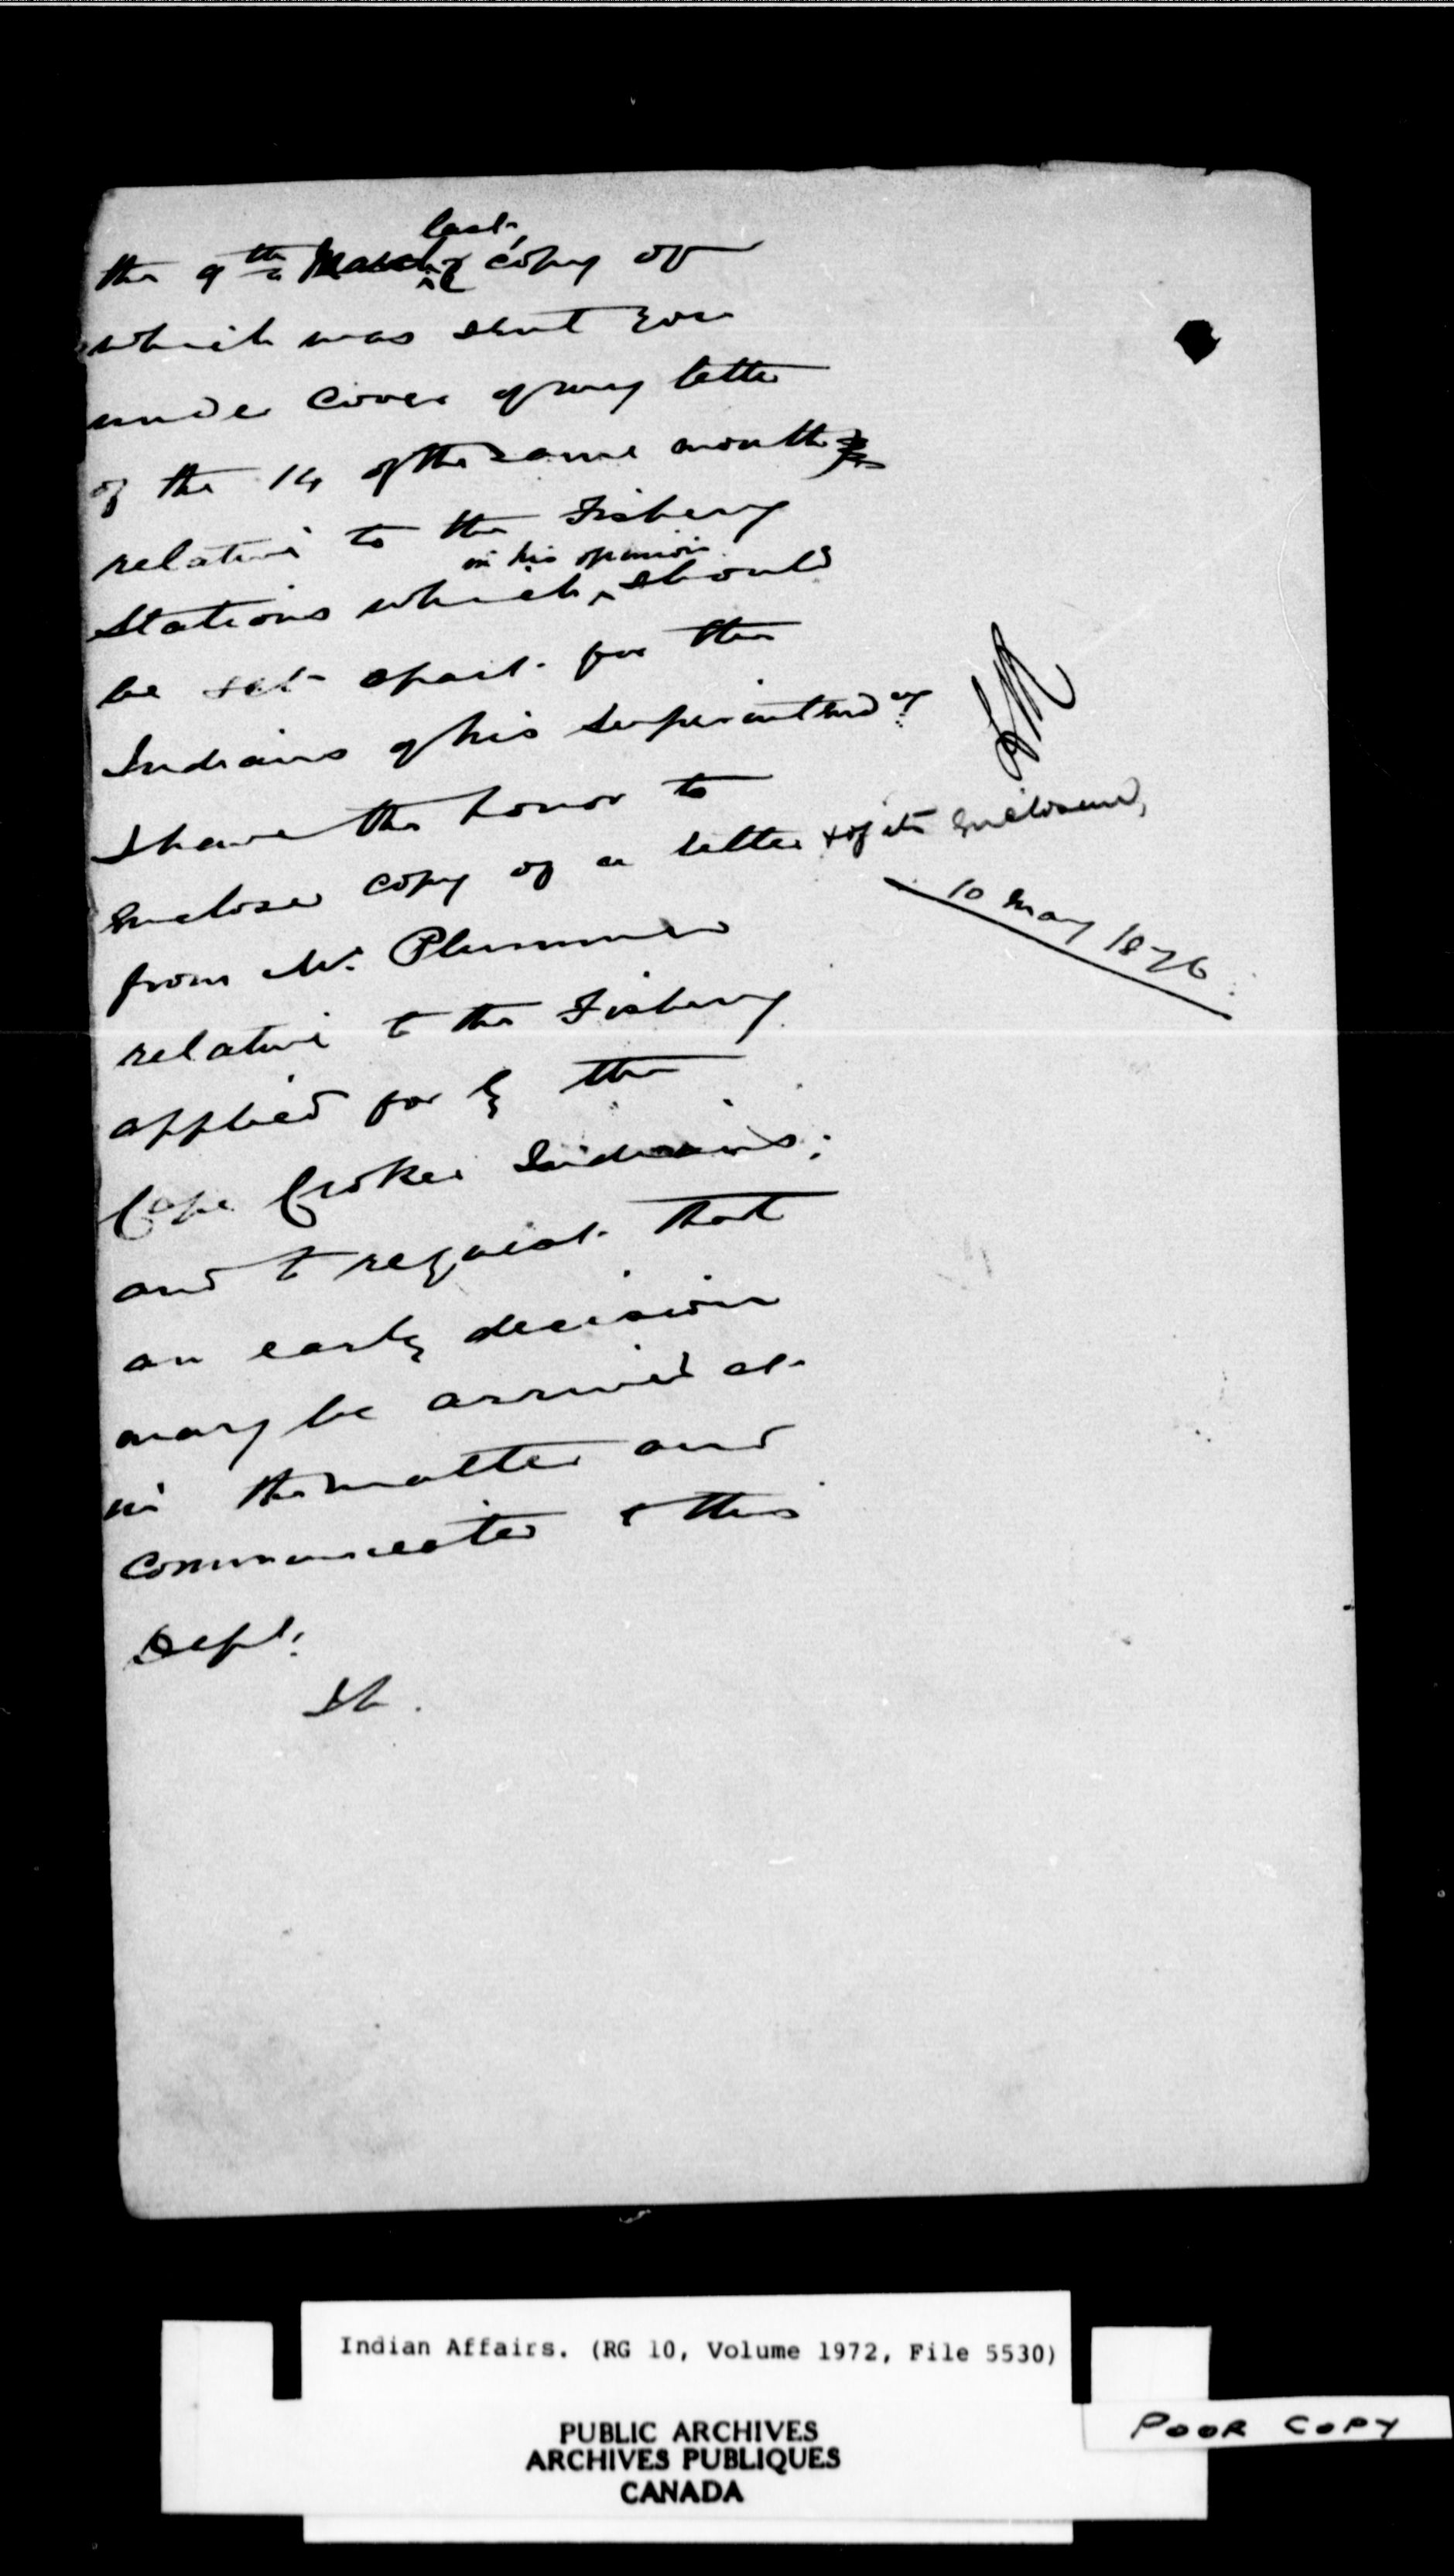 the 9th March last, copy of
which was sent you
under cover of my letter
of the 14 of the same month
relative to the Fishery
Stations which in his opinion should
be set apart for the
Indians of his Superintendcy
I have the honor to
enclose copy of a letter & of its enclosure,
from Mr. Plummer
relative to the Fishery
applied for by the
Cape Croker Indians;
and to request that
an early decision
may be arrived at
in the matter and
communicated to this
Dept.
10 May 1876
Indian Affairs. (RG 10, Volume 1972, File 5530)
PUBLIC ARCHIVES
ARCHIVES PUBLIQUES
CANADA
POOR COPY